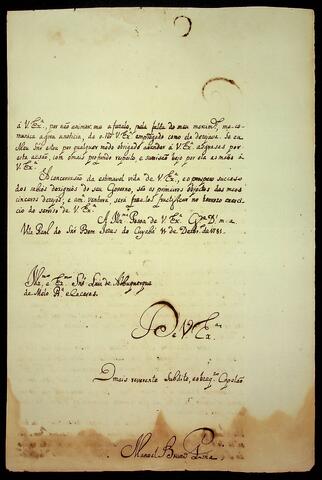 á V. Exª., por não animar-me a fazelo, pela falta do meu
a grva noticia, de o ter V. Exª empregado como eu desejava. Se eu
Meu Snr. estou por qualquer modo obrigado a render á V. Exª as graças por
esta acsão, com o mais profundo respeito, e sumisão bejo por ela as maõs á
V. Exª.
A concervasão da estimavel vida de V. Exª., e o prospero successo
dos sabios designios do seu Governo, são os primeiros objectos dos meus
cinceros desejos, e a m.ª ventura, será
do servico de V. Exª.
A Illmª Pesoa de V. Exª. Gde. Ds. m. a.
Vila Real do Snr Bom Jezus do Cuyabá 14 de Dezbr.º de 1781.
Illmº. e Exmº. Snr. Luiz de Albuquerque
de Melo Prª. e Caceres.
De V. Exª.
O mais reverente Subdito, e obrigº. Capelão
Manoel Bruno Pina